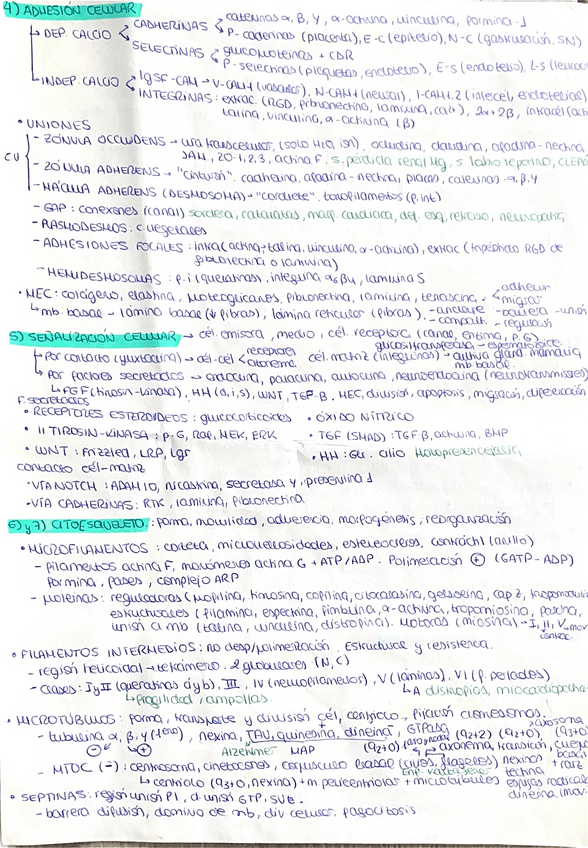 4) ADHESIÓN CELULAR
- DEP. CALCIO
CADHERINAS cateninas α, β, γ, α-actinina, vinculina, formina-1
P-caderinas (placenta), E-C (epitelio), N-C (gastrulación, SN)
SELECTINAS glucoproteínas + CDR
P-selectinas (plaquetas, endotelio), E-S (endotelio), L-S (leucoc
INDEP. CALCIO
IgSF-CAM → V-CAM1 (vasos), N-CAM1 (neural), I-CAM1,2 (intercel, endotelial)
INTEGRINAS: extrac. (RGD, fibronectina, laminina, Ca2+), 2α+2β, intracel (act
talina, vinculina, α-actinina (β)
• UNIONES
CU
- ZÓNULA OCCLUDENS → vía transcelular (solo H2O, ion). ocludina, claudina, afadina-nectina,
JAM, ZO-1,2,3, actina F. S. pérdida renal Mg, S labio leporino, CLEPD
- ZÓNULA ADHERENS → "cinturón". cadherina, afadina-nectina, placas, cateninas α, β, γ
- MÁCULA ADHERENS (DESMOSOMA) → "cordlete". tonofilamentos (f. int)
- GAP: conexones (canal) sordera, cataratas, marp. cardiaca, def. esq, retraso, neuropatía
- PLASMODESMOS: c. vegetales
- ADHESIONES FOCALES: intra (actina + talina, vinculina, α-actinina), extrac (tripéptido RGD de
fibronectina o laminina)
- HEMIDESMOSOMAS: f. i (queratinas), integrina α6β4, laminina 5
• MEC: colágeno, elastina, proteoglicanos, fibronectina, laminina, tenascina
- adherir
- migrar
- anclaje - barrera - unión
compatt. - regulación
mb. basal → lámina basal (↓ fibras), lámina reticular (fibras).
5) SEÑALIZACIÓN CELULAR → cél. emisora, medio, cél. receptora (canal, enzima, P. G)
glucosiltransferasa - espermatogénesis
Por contacto (yuxtacrina) → cél-cél receptores citonema cél. matriz (integrinas) → activa gland. mamaria, mb. basal
Por factores secretados → endocrina, paracrina, autocrina, neuroendocrina (neurotransmisores)
FGF (tirosin-kinasa), HH (d, i, s), WNT, TGF-β. MEC, división, apoptosis, migración, diferenciación
F. secretados
• RECEPTORES ESTEROIDEOS: glucocorticoides • ÓXIDO NÍTRICO
• " TIROSIN-KINASA: P-G, Raf, MEK, ERK • TGF (SMAD): TGF β, activina, BMP
• WNT: Frizzled, LRP, Lgr • HH: Gli. cilio Holoprosencefalia
contacto cél-matriz
• VÍA NOTCH: ADAM10, nicastrina, secretasa γ, presenilina 1
• VÍA CADHERINAS: RTK, laminina, fibronectina
6) y 7) CITOESQUELETO: forma, movilidad, adherencia, morfogénesis, reorganización
• MICROFILAMENTOS: corteza, microvellosidades, estereocilios, contráctil (anillo)
- filamentos actina F, monómeros actina G + ATP/ADP. Polimerización + (GATP-ADP)
formina, complejo ARP
- Proteínas: reguladoras (profilina, timosina, cofilina, citocalasina, gelsolina, cap Z, tropomodulina
estructurales (filamina, espectrina, fimbrina, α-actinina, tropomiosina,
unión a mb (talina, vinculina, distrofina). Motoras (miosina) → I, II, V mov
• FILAMENTOS INTERMEDIOS: no despolimerización. Estructural y resistencia.
- región helicoidal → tetrámero. 2 globulares (N, C)
- clases: I y II (queratinas a y b), III, IV (neurofilamentos), V (láminas), VI (f. perlados)
fragilidad / ampollas
A distrofias, miocardiopatía
• MICROTÚBULOS: forma, transporte y división cél, centriolo, fijación cromosomas.
- tubulina α, β, γ (9 etero), nexina, TAU, quinesina, dineína, GTPasa
- +
Alzheimer MAP
(9d+2) (9d+0), (9t+0)
(9d+0) axonema, transición, cuerpo basal
- MTOC (-): centrosoma, cinetocoros, corpúsculo basal (cilios, flagelos) nexinas + raíz
Enf. Kartagener tectina
→ centriolo (9t+0, nexina) + m pericentriolar + microtúbulos espinas radiales
dineína (mov.
• SEPTINAS: región unión PI, d. unión GTP, SUE.
- barrera difusión, dominio de mb, div. celular, fagocitosis